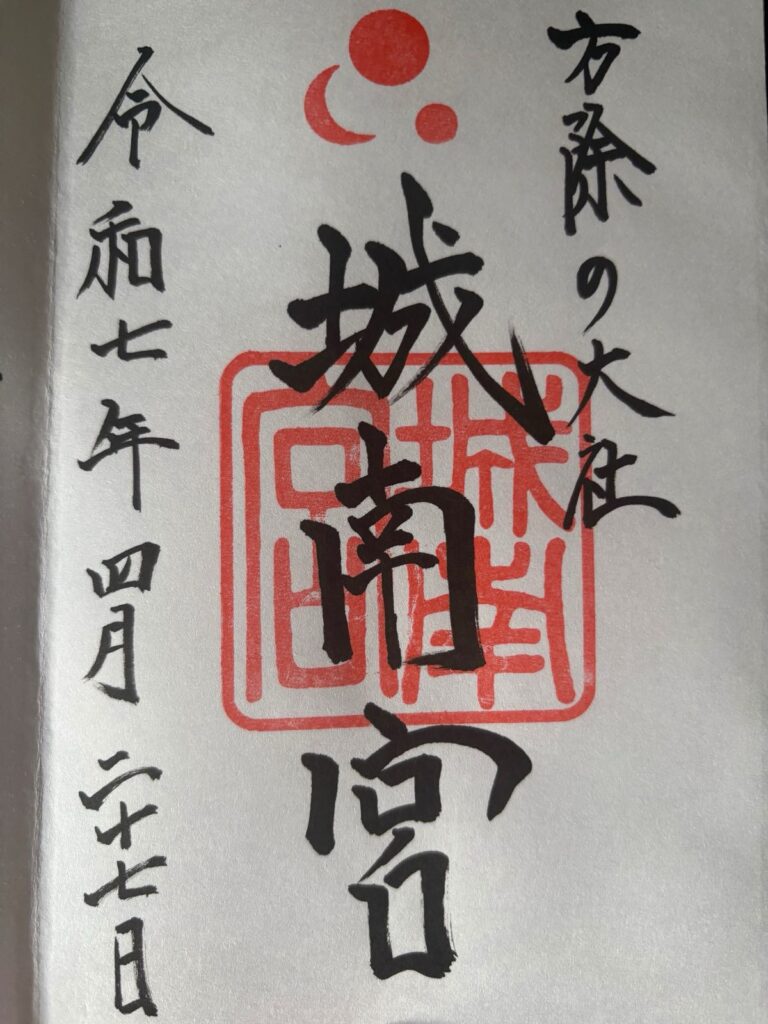 方除の大社
城南宮
城南宮
令和七年四月二十七日